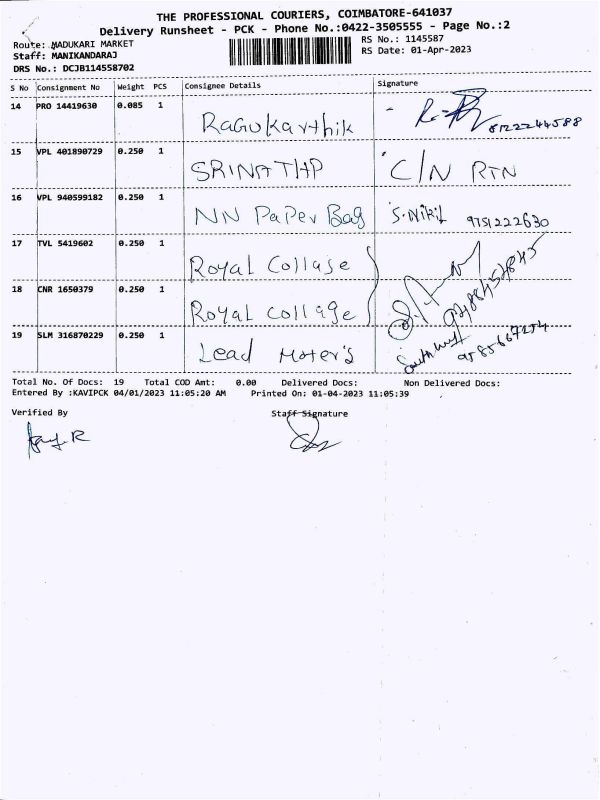 THE PROFESSIONAL COURIERS, COIMBATORE-641037
Delivery Runsheet - PCK - Phone No.:0422-3505555 - Page No.:2
Route: MADUKARI MARKET RS No.: 1145587
Staff: MANIKANDARAJ RS Date: 01-Apr-2023
DRS No.: DCJB114558702
S No Consignment No Weight PCS Consignee Details Signature
14 PRO 14419630 0.085 1 RAGUKarthik 8122244588
15 VPL 401890729 0.250 1 SRINATHP C/N RTN
16 VPL 940599182 0.250 1 NN PaPer Bag S.Nikil 9751222630
17 TVL 5419602 0.250 1 Royal Collase
18 CNR 1650379 0.250 1 Royal collage
19 SLM 316870229 0.250 1 Lead Moter's
Total No. Of Docs: 19 Total COD Amt: 0.00 Delivered Docs: Non Delivered Docs:
Entered By :KAVIPCK 04/01/2023 11:05:20 AM Printed On: 01-04-2023 11:05:39
Verified By Staff Signature